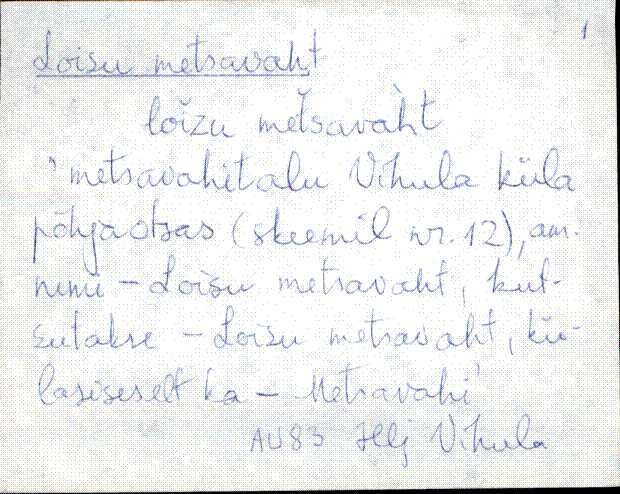 1
Loisu metsavaht
loĭzu metšavaht
'metsavahitalu Vihula küla
põhjaotsas (skeemil nr. 12), am.
nimi – Loisu metsavaht, kut-
sutakse – Loisu metsavaht, kü-
lasiseselt ka – Metsavahi'
AU83 Hlj Vihula